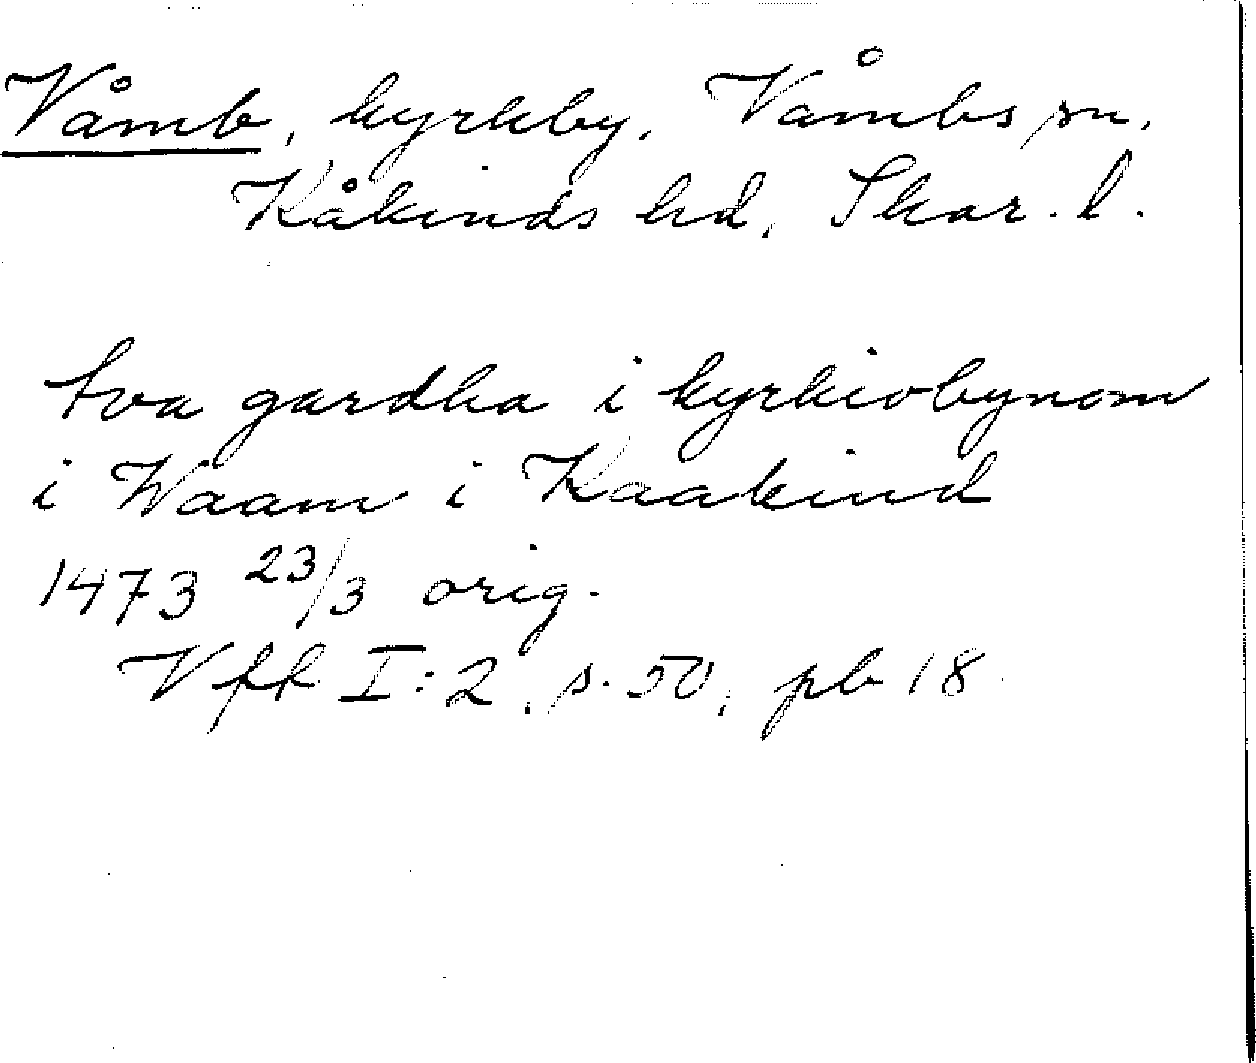 Våmb, kyrkby, Våmbs sn,
Kåkinds hd, Skar. l.
tva gardha i kyrkiobynom
i Waam i Kaakind
1473 23/3 orig.
Vff I:2, s. 50, pb 18